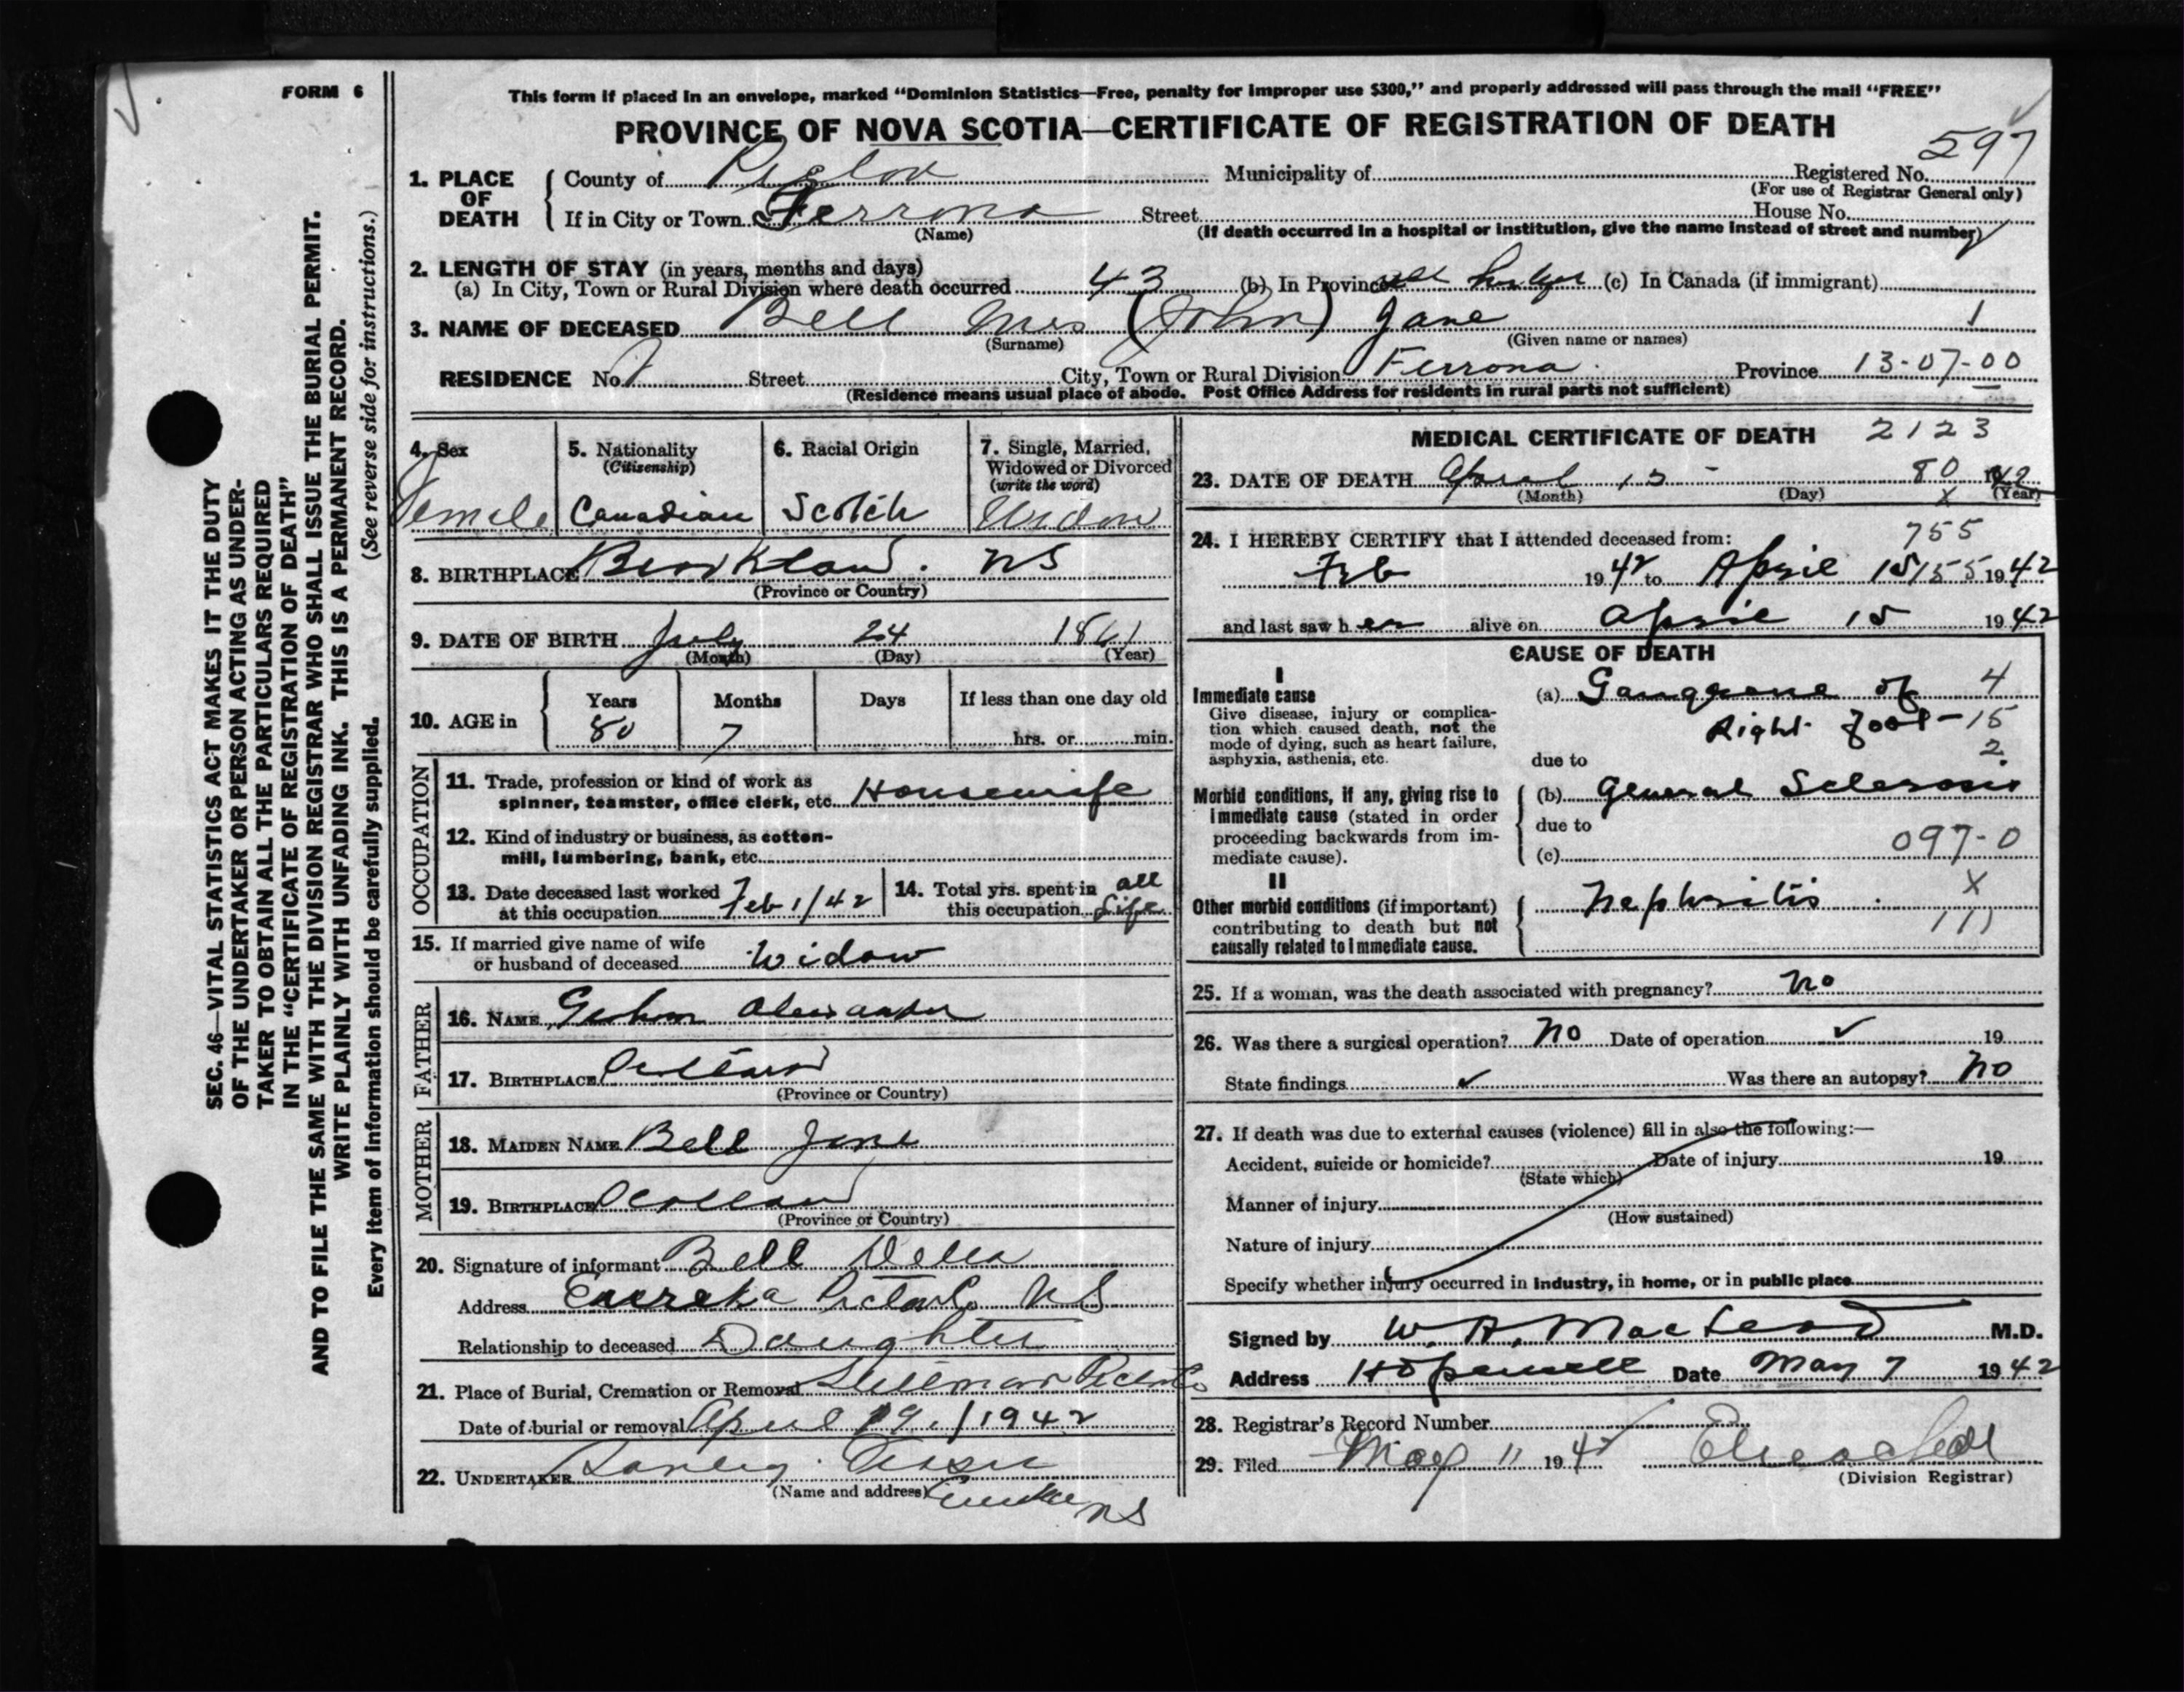 FORM 6
This form if placed in an envelope, marked "Dominion Statistics—Free, penalty for improper use $300," and properly addressed will pass through the mail "FREE"
PROVINCE OF NOVA SCOTIA—CERTIFICATE OF REGISTRATION OF DEATH
597
1. PLACE OF DEATH
County of Pictou Municipality of Registered No.
(For use of Registrar General only)
If in City or Town Ferrona Street House No.
(Name) (If death occurred in a hospital or institution, give the name instead of street and number)
2. LENGTH OF STAY (in years, months and days)
(a) In City, Town or Rural Division where death occurred 43 (b) In Province all her life (c) In Canada (if immigrant)
3. NAME OF DECEASED Bell Mrs (John) Jane 1
(Surname) (Given name or names)
RESIDENCE No. Street City, Town or Rural Division Ferrona Province 13-07-00
(Residence means usual place of abode. Post Office Address for residents in rural parts not sufficient)
4. Sex
Female
5. Nationality
(Citizenship)
Canadian
6. Racial Origin
Scotch
7. Single, Married,
Widowed or Divorced
(write the word)
Widow
8. BIRTHPLACE NS
(Province or Country)
9. DATE OF BIRTH July 24 1861
(Month) (Day) (Year)
10. AGE in
Years Months Days If less than one day old
80 7 hrs. or min.
OCCUPATION
11. Trade, profession or kind of work as
spinner, teamster, office clerk, etc. Housewife
12. Kind of industry or business, as cotton-
mill, lumbering, bank, etc.
13. Date deceased last worked
at this occupation Feb 1/42
14. Total yrs. spent in all
this occupation life
15. If married give name of wife
or husband of deceased Widow
FATHER
16. NAME Alexander
17. BIRTHPLACE Scotland
(Province or Country)
MOTHER
18. MAIDEN NAME Bell Jane
19. BIRTHPLACE Scotland
(Province or Country)
20. Signature of informant Bell Della
Address Eureka Pictou Co NS
Relationship to deceased Daughter
21. Place of Burial, Cremation or Removal Pictou Co
Date of burial or removal April 19/1942
22. UNDERTAKER
(Name and address) Eureka
NS
MEDICAL CERTIFICATE OF DEATH 2123
23. DATE OF DEATH April 15 - 80 1942
(Month) (Day) X (Year)
24. I HEREBY CERTIFY that I attended deceased from: 755
Feb 1942 to April 15 155 1942
and last saw her alive on April 15 1942
CAUSE OF DEATH
I
Immediate cause
Give disease, injury or complica-
tion which caused death, not the
mode of dying, such as heart failure,
asphyxia, asthenia, etc.
(a) Gangrene of 4
Right foot - 15
2
due to
Morbid conditions, if any, giving rise to
immediate cause (stated in order
proceeding backwards from im-
mediate cause).
(b) General Sclerosis
due to
(c) 097-0
II
Other morbid conditions (if important)
contributing to death but not
causally related to immediate cause.
Nephritis X
111
25. If a woman, was the death associated with pregnancy? no
26. Was there a surgical operation? No Date of operation ✓ 19
State findings ✓ Was there an autopsy? No
27. If death was due to external causes (violence) fill in also the following:—
Accident, suicide or homicide? Date of injury 19
(State which)
Manner of injury
(How sustained)
Nature of injury
Specify whether injury occurred in industry, in home, or in public place
Signed by W. A. MacLeod M.D.
Address Hopewell Date May 7 1942
28. Registrar's Record Number
29. Filed May 11 1942
(Division Registrar)
SEC. 46—VITAL STATISTICS ACT MAKES IT THE DUTY
OF THE UNDERTAKER OR PERSON ACTING AS UNDER-
TAKER TO OBTAIN ALL THE PARTICULARS REQUIRED
IN THE "CERTIFICATE OF REGISTRATION OF DEATH"
AND TO FILE THE SAME WITH THE DIVISION REGISTRAR WHO SHALL ISSUE THE BURIAL PERMIT.
WRITE PLAINLY WITH UNFADING INK. THIS IS A PERMANENT RECORD.
(See reverse side for instructions.)
Every item of information should be carefully supplied.